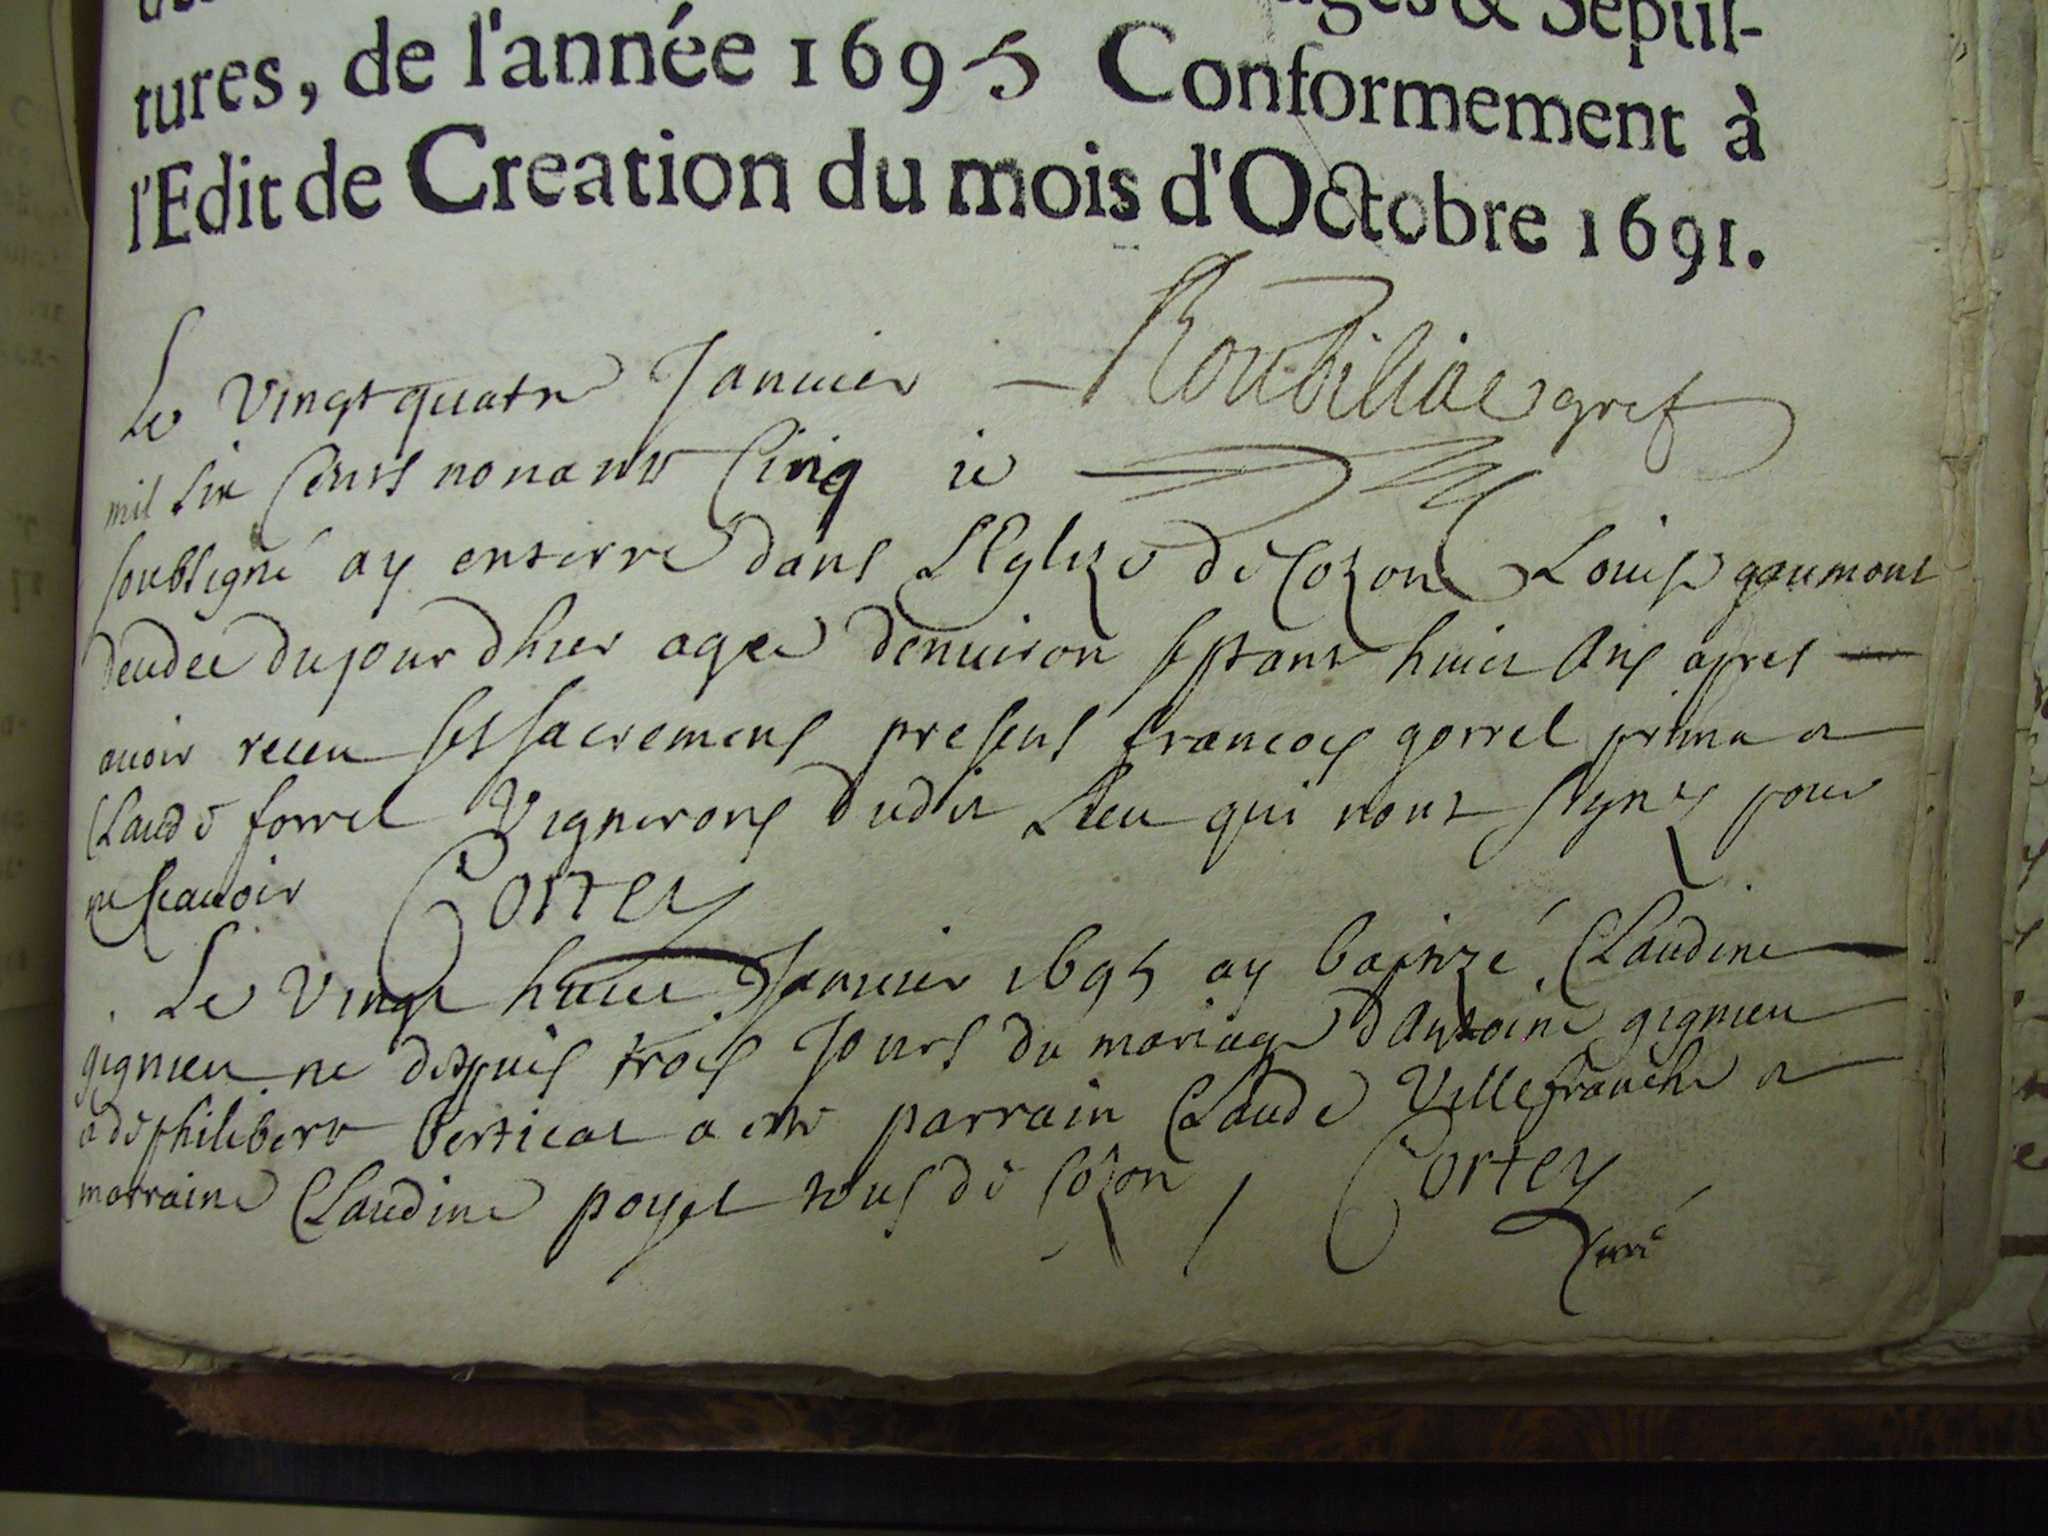 ages & Sepul-
tures, de l'année 1695 Conformement à
l'Edit de Creation du mois d'Octobre 1691.
Roubiliac gref
Le vingt quatre Januier
mil six Cents nonante Cinq ie
soubsigné ay enterre dans L'Eglize de Cozon Louise gaumont
decedee dujourdhier agee denuiron septante huict Ans apres
auoir receu ses sacremens presens francoys gorrel et
Claude forrel Vignerons dudit Lieu qui nont signez pour
ne scauoir Cortey
Le Vingt huict Januier 1695 ay baptizé Claudine
gignieu ne depuis trois Jours du mariage d'Antoine gignieu
& de philiberte Berticat a este parrain Claude Villefranche &
marraine Claudine poyet tous de Cozon / Cortey
Curé